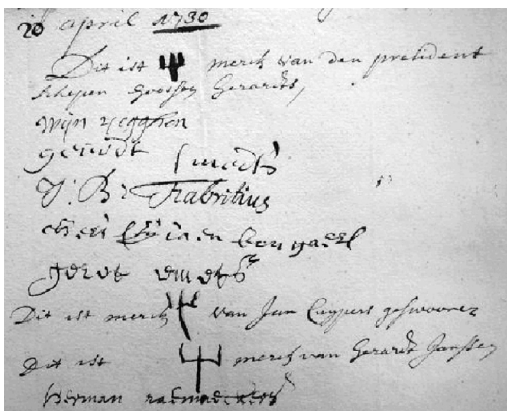 20 april 1730
Dit ist merck van den president
schepen Goossen Gerardts,
Wijn
gerardt smedts
J: B: Fabritius
bongaerts
gerat smets
Dit ist merck van Jan Cuypers geswooren
Dit ist merck van Gerardt Janssen
Herman raemaeckers